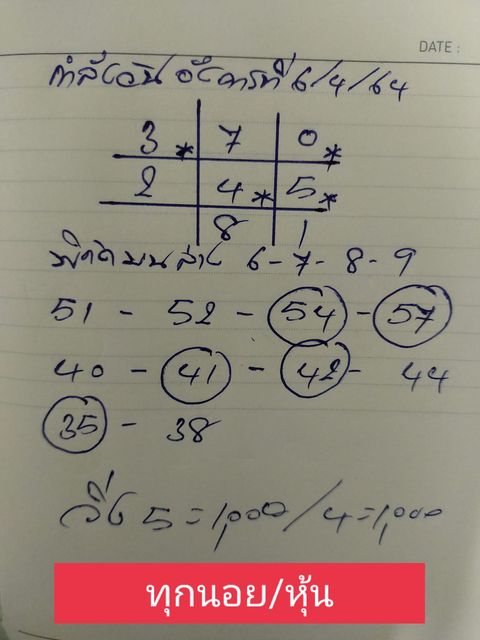 DATE :
กำลังวันอังคารที่ 6/4/64
3* 7 0*
2 4* 5*
8 1
บนล่าง 6-7-8-9
51 - 52 - 54 - 57
40 - 41 - 42 - 44
35 - 38
วิ่ง 5=1,000/4=1,000
ทุกนอย/หุ้น